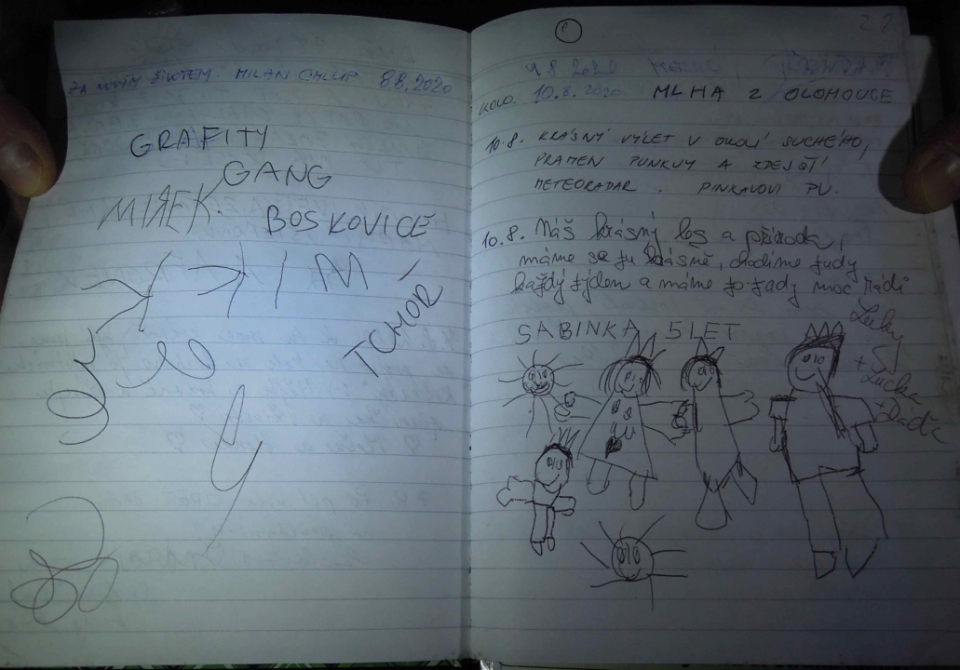 ZA NOVÝM ŽIVOTEM. MILAN CHLUP 8.8.2020
GRAFITY
GANG
MIREK.
BOSKOVICE
TCHOŘ
27
9.8.2020
KOLO. 10.8.2020 MLHA Z OLOMOUCE
10.8. KRÁSNÝ VÝLET V OKOLÍ SUCHÉHO,
PRAMEN PUNKVY A ZDEJŠÍ
METEORADAR. PINKAVOVI PV.
10.8. Náš krásný les a příroda,
máme se tu krásně, chodíme tudy
každý týden a máme to tady moc rádi
Lucky
+ Lucka
SABINKA 5 LET